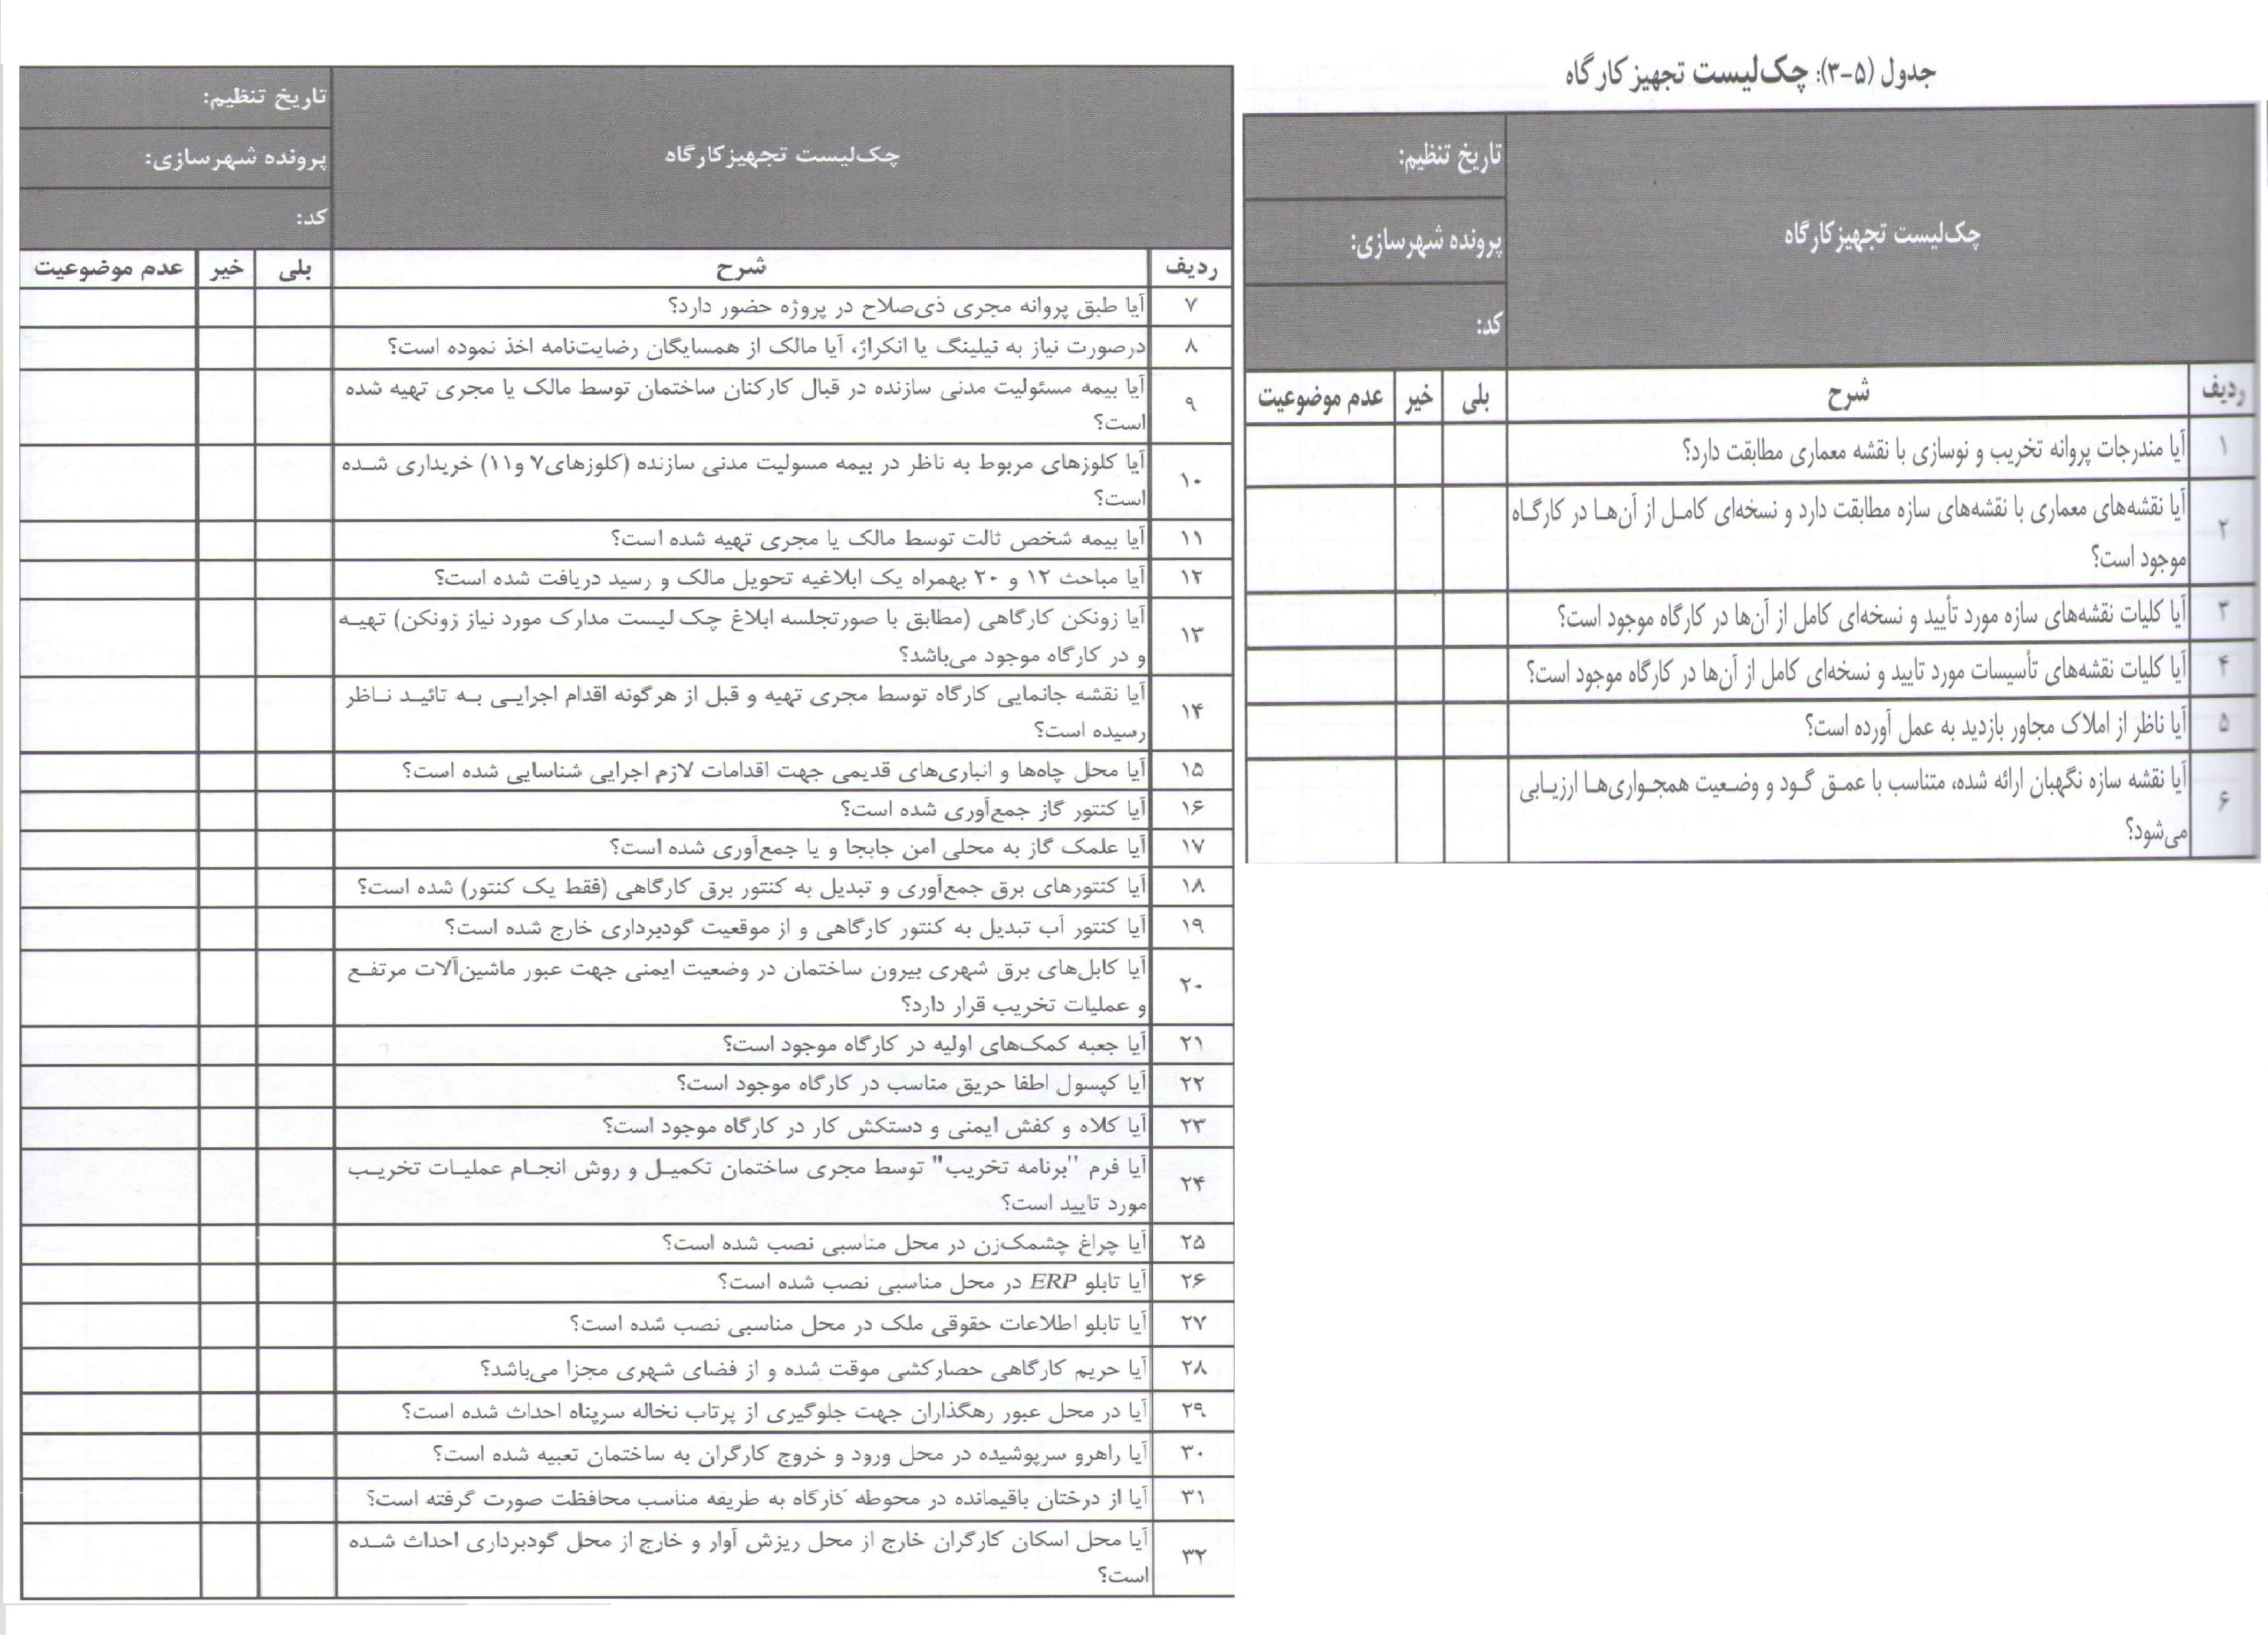 جدول (۵-۳): چک‌لیست تجهیز کارگاه
چک‌لیست تجهیز کارگاه
تاریخ تنظیم:
پرونده شهرسازی:
کد:
ردیف شرح بلی خیر عدم موضوعیت
۱ آیا مندرجات پروانه تخریب و نوسازی با نقشه معماری مطابقت دارد؟
۲ آیا نقشه‌های معماری با نقشه‌های سازه مطابقت دارد و نسخه‌ای کامل از آن‌ها در کارگاه
موجود است؟
۳ آیا کلیات نقشه‌های سازه مورد تأیید و نسخه‌ای کامل از آن‌ها در کارگاه موجود است؟
۴ آیا کلیات نقشه‌های تأسیسات مورد تایید و نسخه‌ای کامل از آن‌ها در کارگاه موجود است؟
۵ آیا ناظر از املاک مجاور بازدید به عمل آورده است؟
۶ آیا نقشه سازه نگهبان ارائه شده، متناسب با عمق گود و وضعیت همجواری‌ها ارزیابی
می‌شود؟
چک‌لیست تجهیز کارگاه
تاریخ تنظیم:
پرونده شهرسازی:
کد:
ردیف شرح بلی خیر عدم موضوعیت
۷ آیا طبق پروانه مجری ذی‌صلاح در پروژه حضور دارد؟
۸ درصورت نیاز به نیلینگ یا انکراژ، آیا مالک از همسایگان رضایت‌نامه اخذ نموده است؟
۹ آیا بیمه مسئولیت مدنی سازنده در قبال کارکنان ساختمان توسط مالک یا مجری تهیه شده
است؟
۱۰ آیا کلوزهای مربوط به ناظر در بیمه مسولیت مدنی سازنده (کلوزهای۷ و۱۱) خریداری شده
است؟
۱۱ آیا بیمه شخص ثالث توسط مالک یا مجری تهیه شده است؟
۱۲ آیا مباحث ۱۲ و ۲۰ بهمراه یک ابلاغیه تحویل مالک و رسید دریافت شده است؟
۱۳ آیا زونکن کارگاهی (مطابق با صورتجلسه ابلاغ چک لیست مدارک مورد نیاز زونکن) تهیه
و در کارگاه موجود می‌باشد؟
۱۴ آیا نقشه جانمایی کارگاه توسط مجری تهیه و قبل از هرگونه اقدام اجرایی به تائید ناظر
رسیده است؟
۱۵ آیا محل چاه‌ها و انباری‌های قدیمی جهت اقدامات لازم اجرایی شناسایی شده است؟
۱۶ آیا کنتور گاز جمع‌آوری شده است؟
۱۷ آیا علمک گاز به محلی امن جابجا و یا جمع‌آوری شده است؟
۱۸ آیا کنتورهای برق جمع‌آوری و تبدیل به کنتور برق کارگاهی (فقط یک کنتور) شده است؟
۱۹ آیا کنتور آب تبدیل به کنتور کارگاهی و از موقعیت گودبرداری خارج شده است؟
۲۰ آیا کابل‌های برق شهری بیرون ساختمان در وضعیت ایمنی جهت عبور ماشین‌آلات مرتفع
و عملیات تخریب قرار دارد؟
۲۱ آیا جعبه کمک‌های اولیه در کارگاه موجود است؟
۲۲ آیا کپسول اطفا حریق مناسب در کارگاه موجود است؟
۲۳ آیا کلاه و کفش ایمنی و دستکش کار در کارگاه موجود است؟
۲۴ آیا فرم "برنامه تخریب" توسط مجری ساختمان تکمیل و روش انجام عملیات تخریب
مورد تایید است؟
۲۵ آیا چراغ چشمک‌زن در محل مناسبی نصب شده است؟
۲۶ آیا تابلو ERP در محل مناسبی نصب شده است؟
۲۷ آیا تابلو اطلاعات حقوقی ملک در محل مناسبی نصب شده است؟
۲۸ آیا حریم کارگاهی حصارکشی موقت شده و از فضای شهری مجزا می‌باشد؟
۲۹ آیا در محل عبور رهگذاران جهت جلوگیری از پرتاب نخاله سرپناه احداث شده است؟
۳۰ آیا راهرو سرپوشیده در محل ورود و خروج کارگران به ساختمان تعبیه شده است؟
۳۱ آیا از درختان باقیمانده در محوطه کارگاه به طریقه مناسب محافظت صورت گرفته است؟
۳۲ آیا محل اسکان کارگران خارج از محل ریزش آوار و خارج از محل گودبرداری احداث شده
است؟